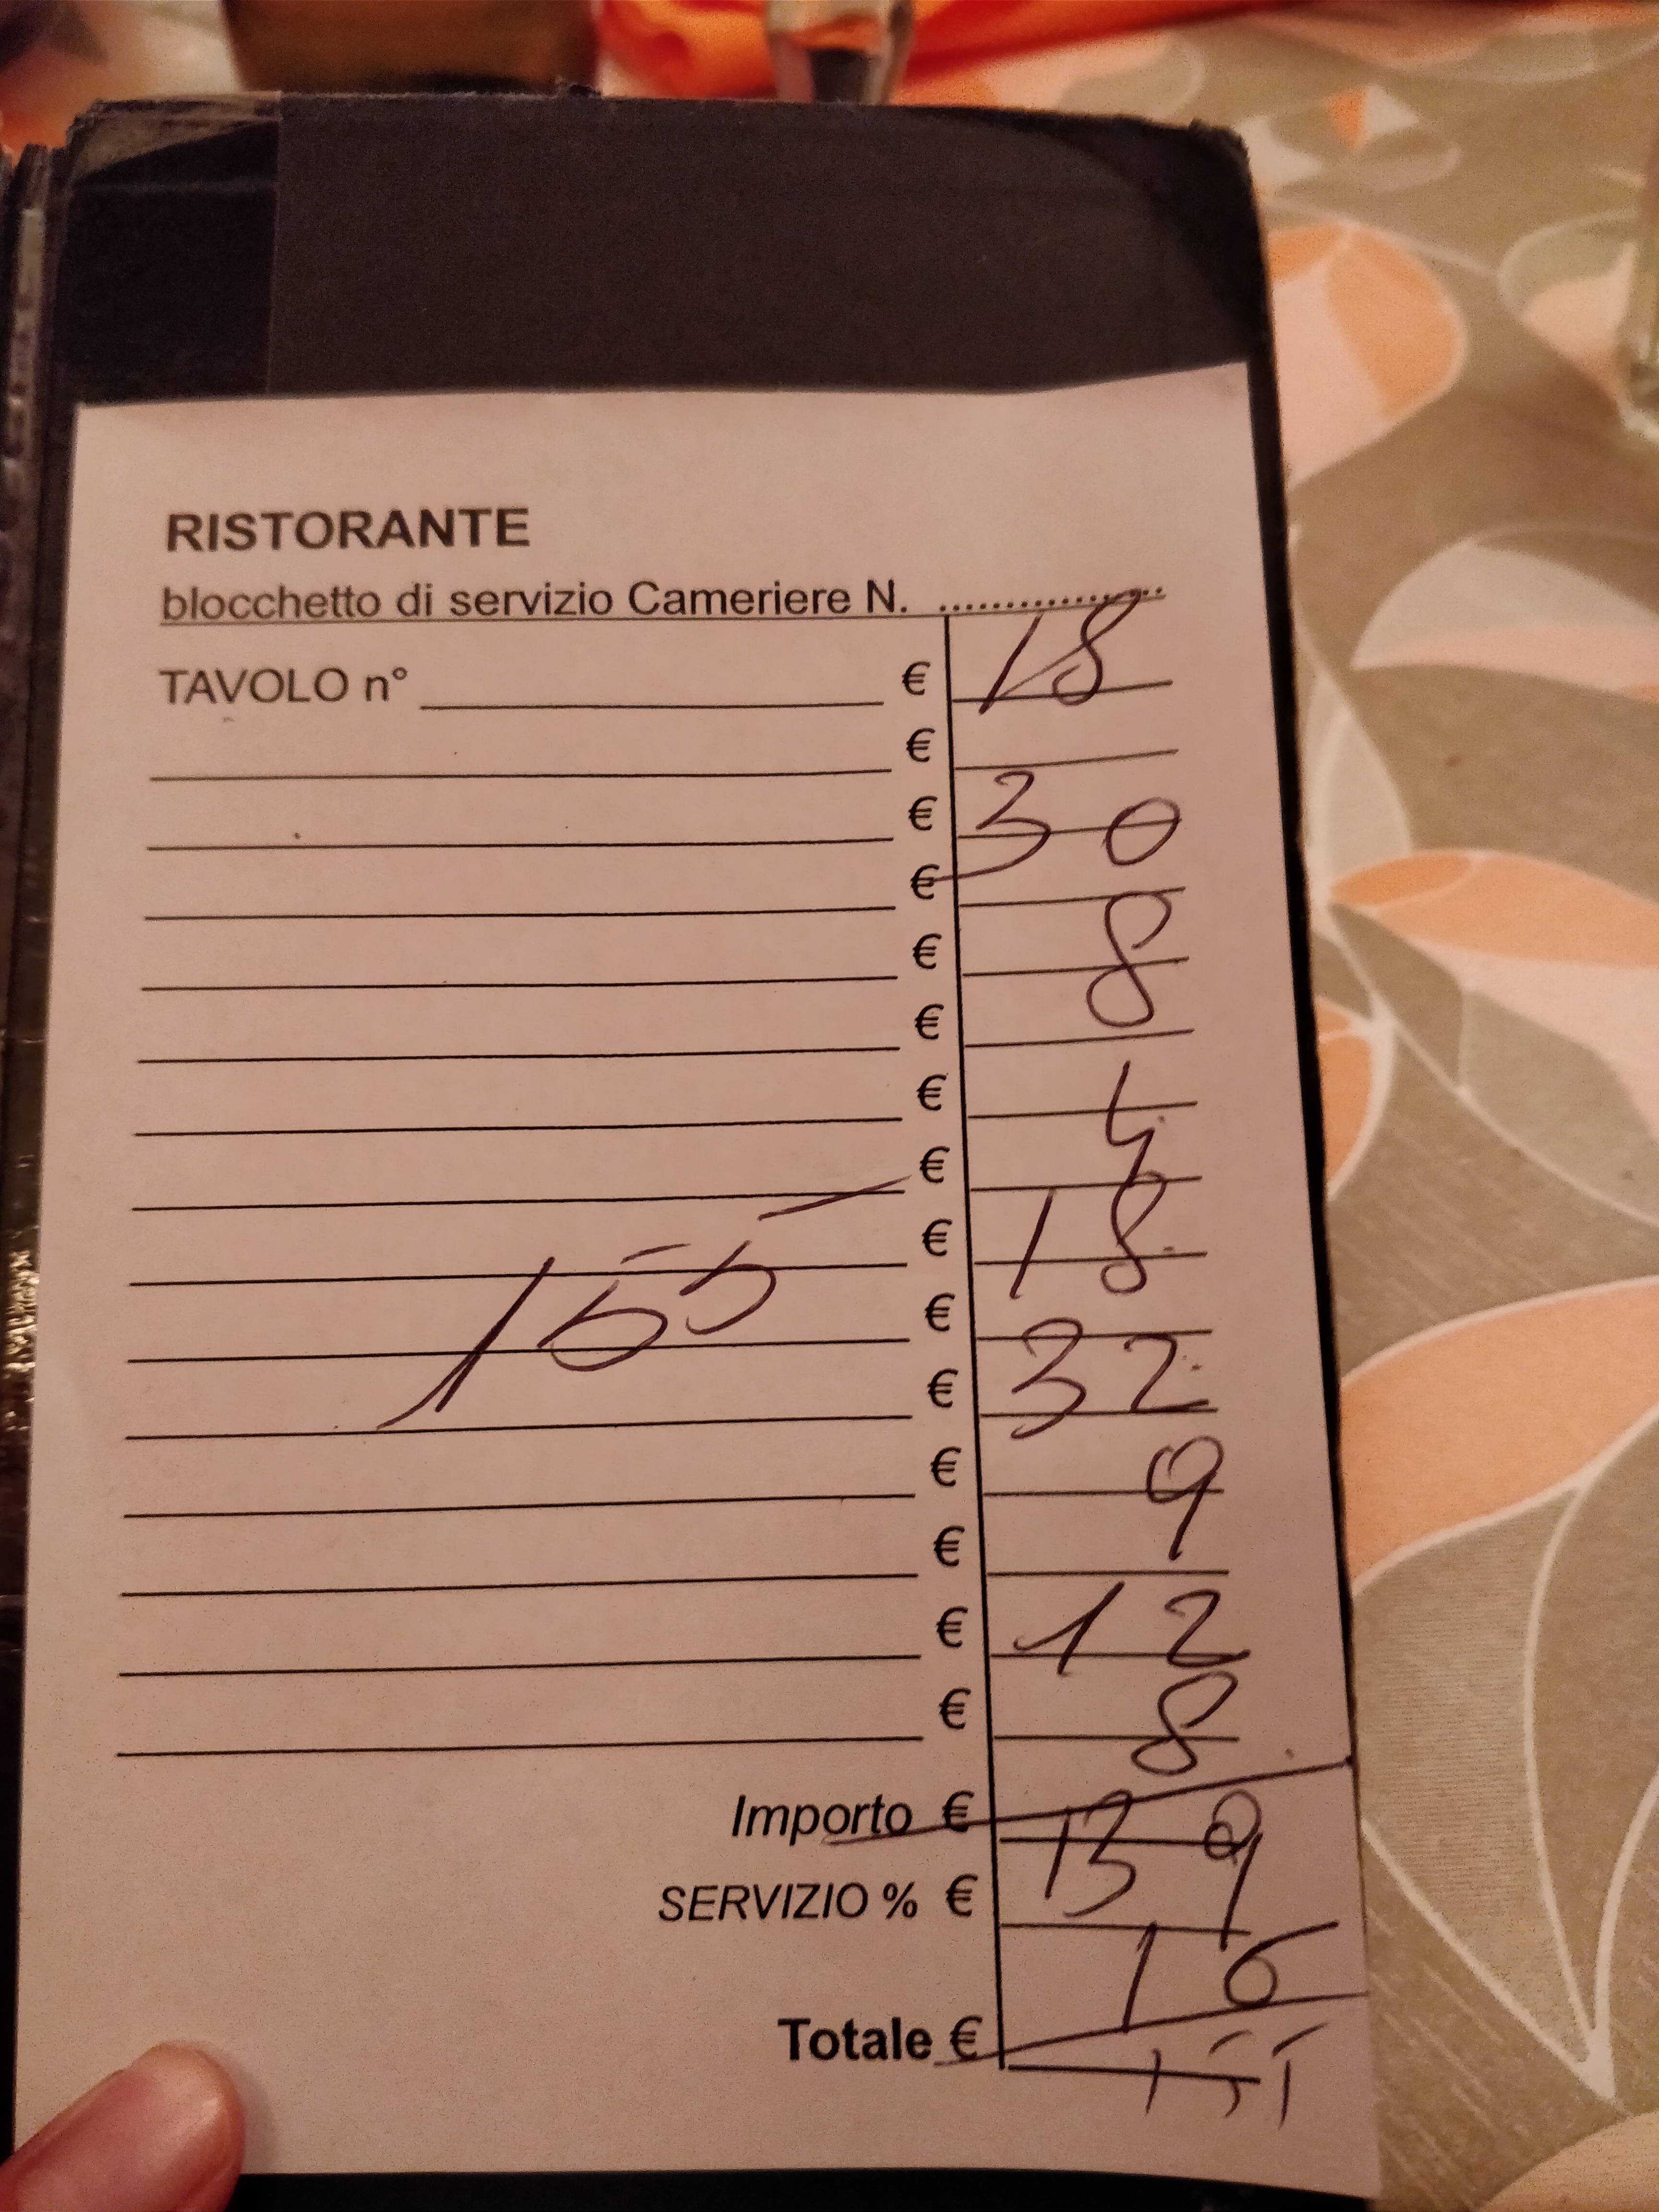 RISTORANTE
blocchetto di servizio Cameriere N. ..................
TAVOLO n° € 18
€
€ 30
€
€ 8
€
€ 4
€
€ 18
€
€ 32
€ 9
€
€ 12
€ 8
155
Importo € 139
SERVIZIO % €
16
Totale € 155